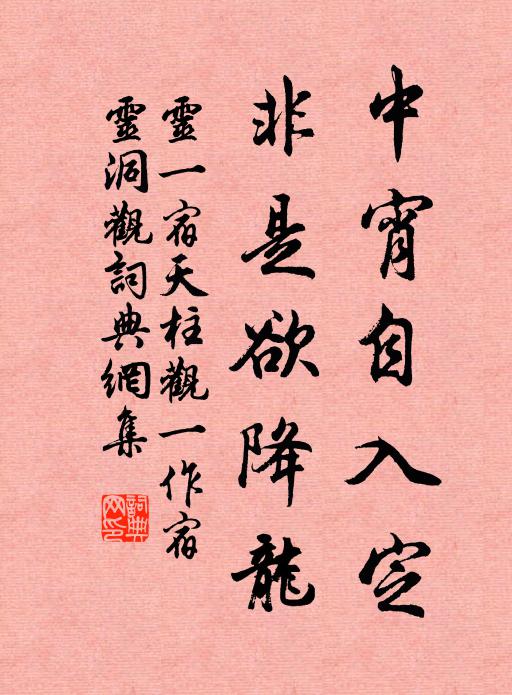 中宵自入定
非是欲降龍
靈一宿天柱觀一作宿
靈洞觀詞典網集
詞典
网印